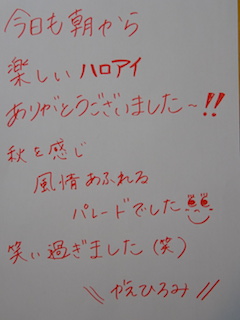 今日も朝から
楽しいハロアイ
ありがとうございました～!!
秋を感じ
風情あふれる
パレードでした
笑い過ぎました(笑)
\\ がえひろみ //